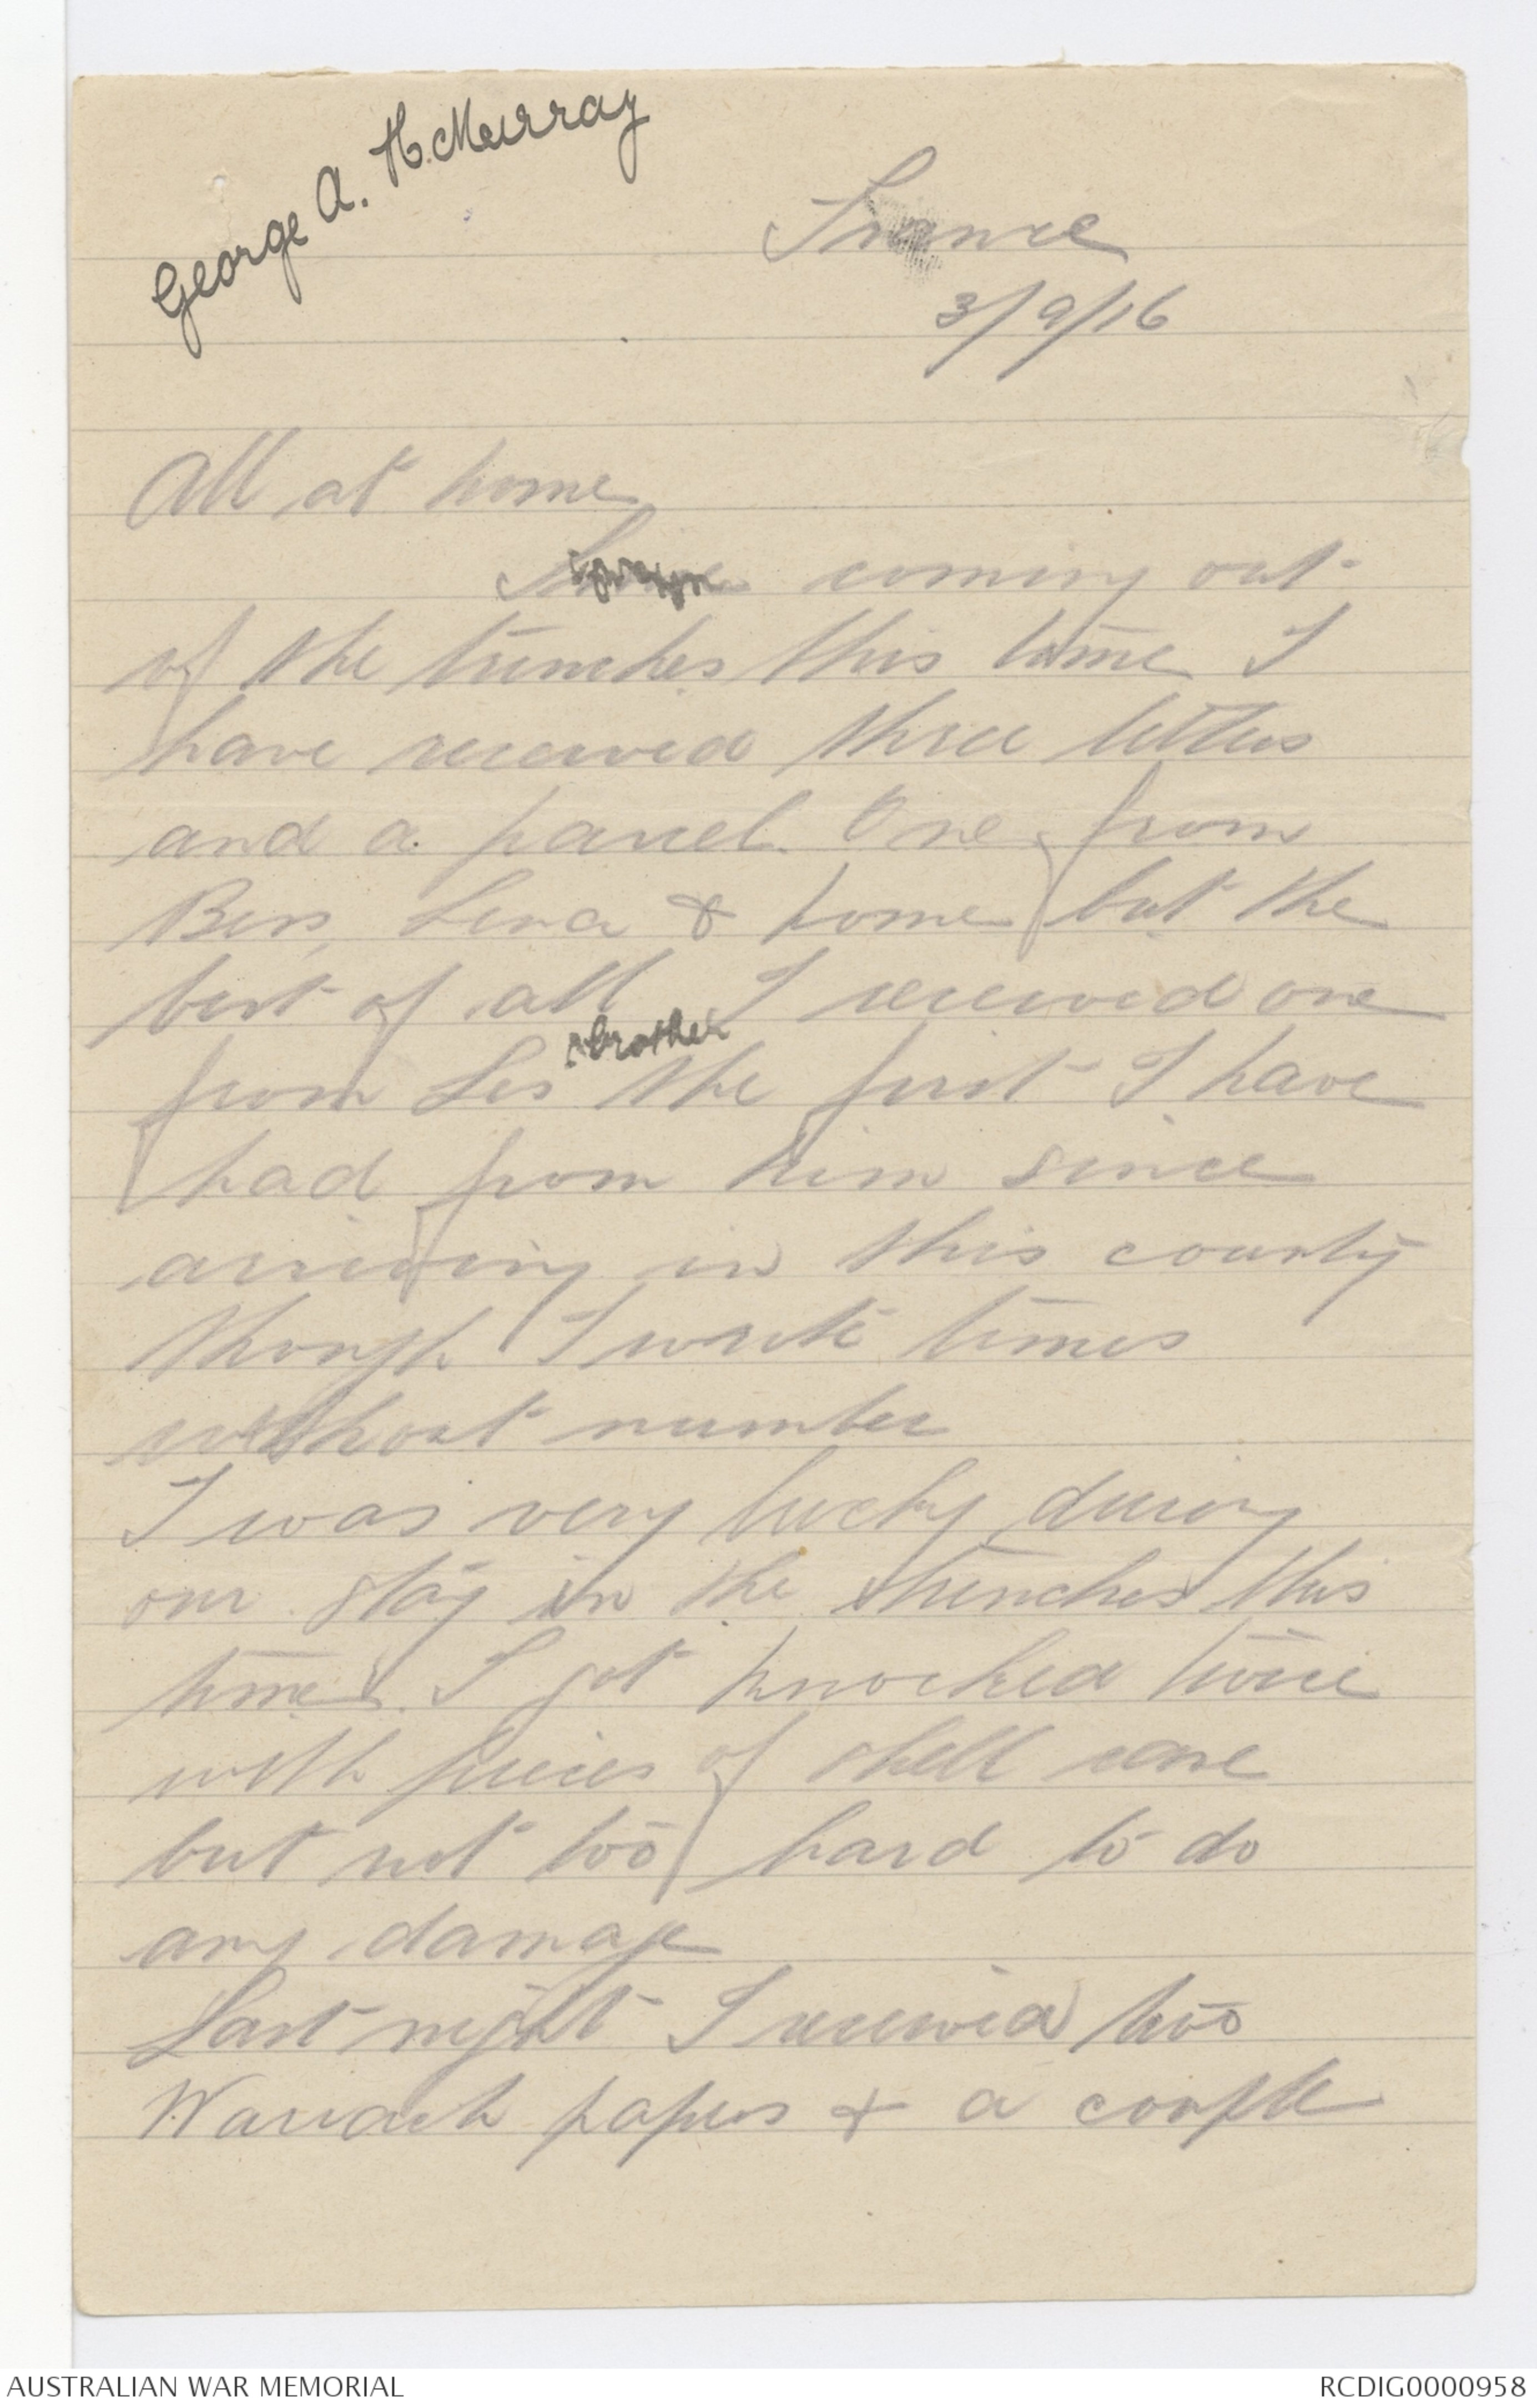 George A. McMurray
France
3/9/16
All at home
coming out
of the trenches this time I
have received three letters
and a parcel. One from
Bess, Lena & home but the
best of all I received one
brother
from Les the first I have
had from him since
arriving in this country
though I write times
without number
I was very lucky during
our stay in the trenches this
time. I got knocked twice
with pieces of shell case
but not too hard to do
any damage
Last night I received two
Warrack papers & a couple
AUSTRALIAN WAR MEMORIAL
RCDIG0000958